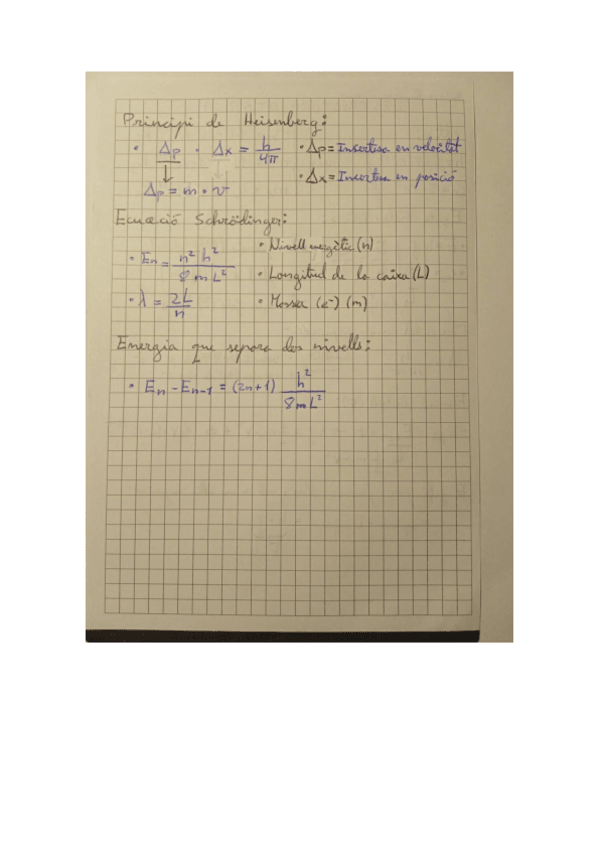 Principi de Heisenberg:
• Δp · Δx = h/4π • Δp = Insertesa en velocitat
↓ • Δx = Incertesa en posició
Δp = m • v
Ecuació Schrödinger:
• Nivell energètic (n)
• En = n² h² / 8 m L²
• Longitud de la caixa (L)
• λ = 2L/n • Massa (e⁻) (m)
Energia que separa dos nivells:
• En - En-1 = (2n+1) h² / 8mL²